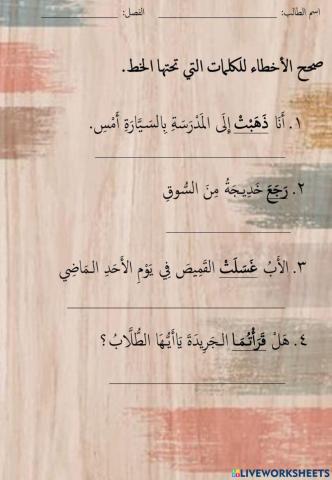 اسم الطالب: ____________ الفصل: ____________
صحح الأخطاء للكلمات التي تحتها الخط.
١. أَنَا ذَهَبْتْ إِلَى المَدْرَسَةِ بِالسَيَّارَةِ أَمْسِ.
٢. رَجَعَ خَدِيجَةُ مِنَ السُّوقِ
٣. الأَبُ غَسَلَتْ القَمِيصَ فِي يَوْمِ الأَحَدِ الـمَاضِي
٤. هَلْ قَرَأْتُمَا الـجَرِيدَةَ يَاأَيُّهَا الطُّلَّابُ؟
LIVEWORKSHEETS